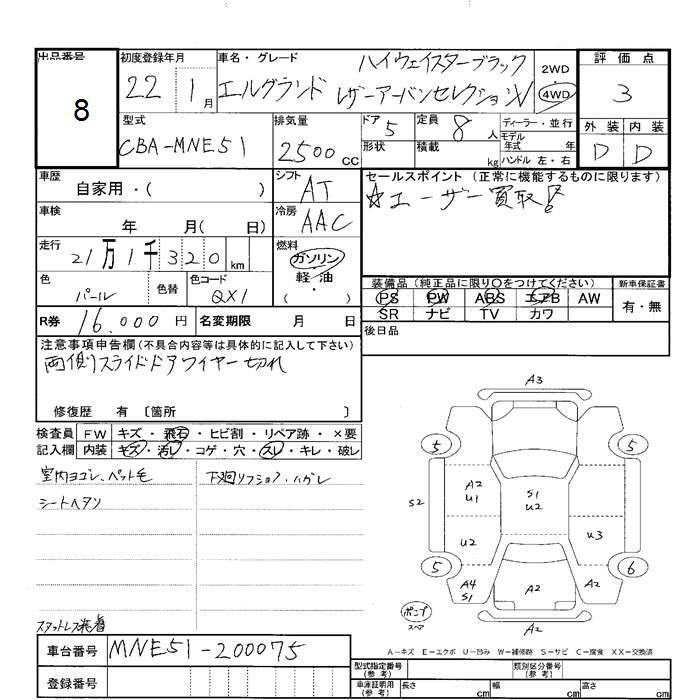 出品番号 8
初度登録年月 22 1月
車名・グレード ハイウェイスターブラック
エルグランド レザーアーバンセレクションV
2WD
4WD
評価点 3
外装 内装
D D
型式 CBA-MNE51
排気量 2500cc
ドア 5
形状
定員 8人
積載 kg
ディーラー・並行
モデル年式 年
ハンドル 左・右
車歴 自家用・( )
シフト AT
車検 年 月( 日)
冷房 AAC
走行 21万1千320km
燃料 ガソリン
軽・油
・( )
色 パール 色替
色コード QX1
R券 16,000円 名変期限 月 日
セールスポイント (正常に機能するものに限ります)
☆ユーザー買取!
装備品(純正品に限り○をつけてください)
PS PW ABS エアB AW
SR ナビ TV カワ
新車保証書
有・無
後日品
注意事項申告欄(不具合内容等は具体的に記入して下さい)
両側スライドドアワイヤー切れ
修復歴 有〔箇所 〕
検査員記入欄
FW キズ・飛石・ヒビ割・リペア跡・×要
内装 キズ・汚レ・コゲ・穴・スレ・キレ・破レ
室内ヨゴレ、ペット毛 下廻リフション・ハガレ
シートヘタリ
スタットレス装着
A3
5 5
A2
U1
S1
U2
S2
U2 U3
5 6
A4
S1
A2
A2
ポンプ
スペア
A2
A-キズ E-エクボ U-凹み W-補修跡 S-サビ C-腐食 XX-交換済
車台番号 MNE51-200075
登録番号
型式指定番号(参考) 類別区分番号(参考)
車庫証明用(参考) 長さ cm 幅 cm 高さ cm